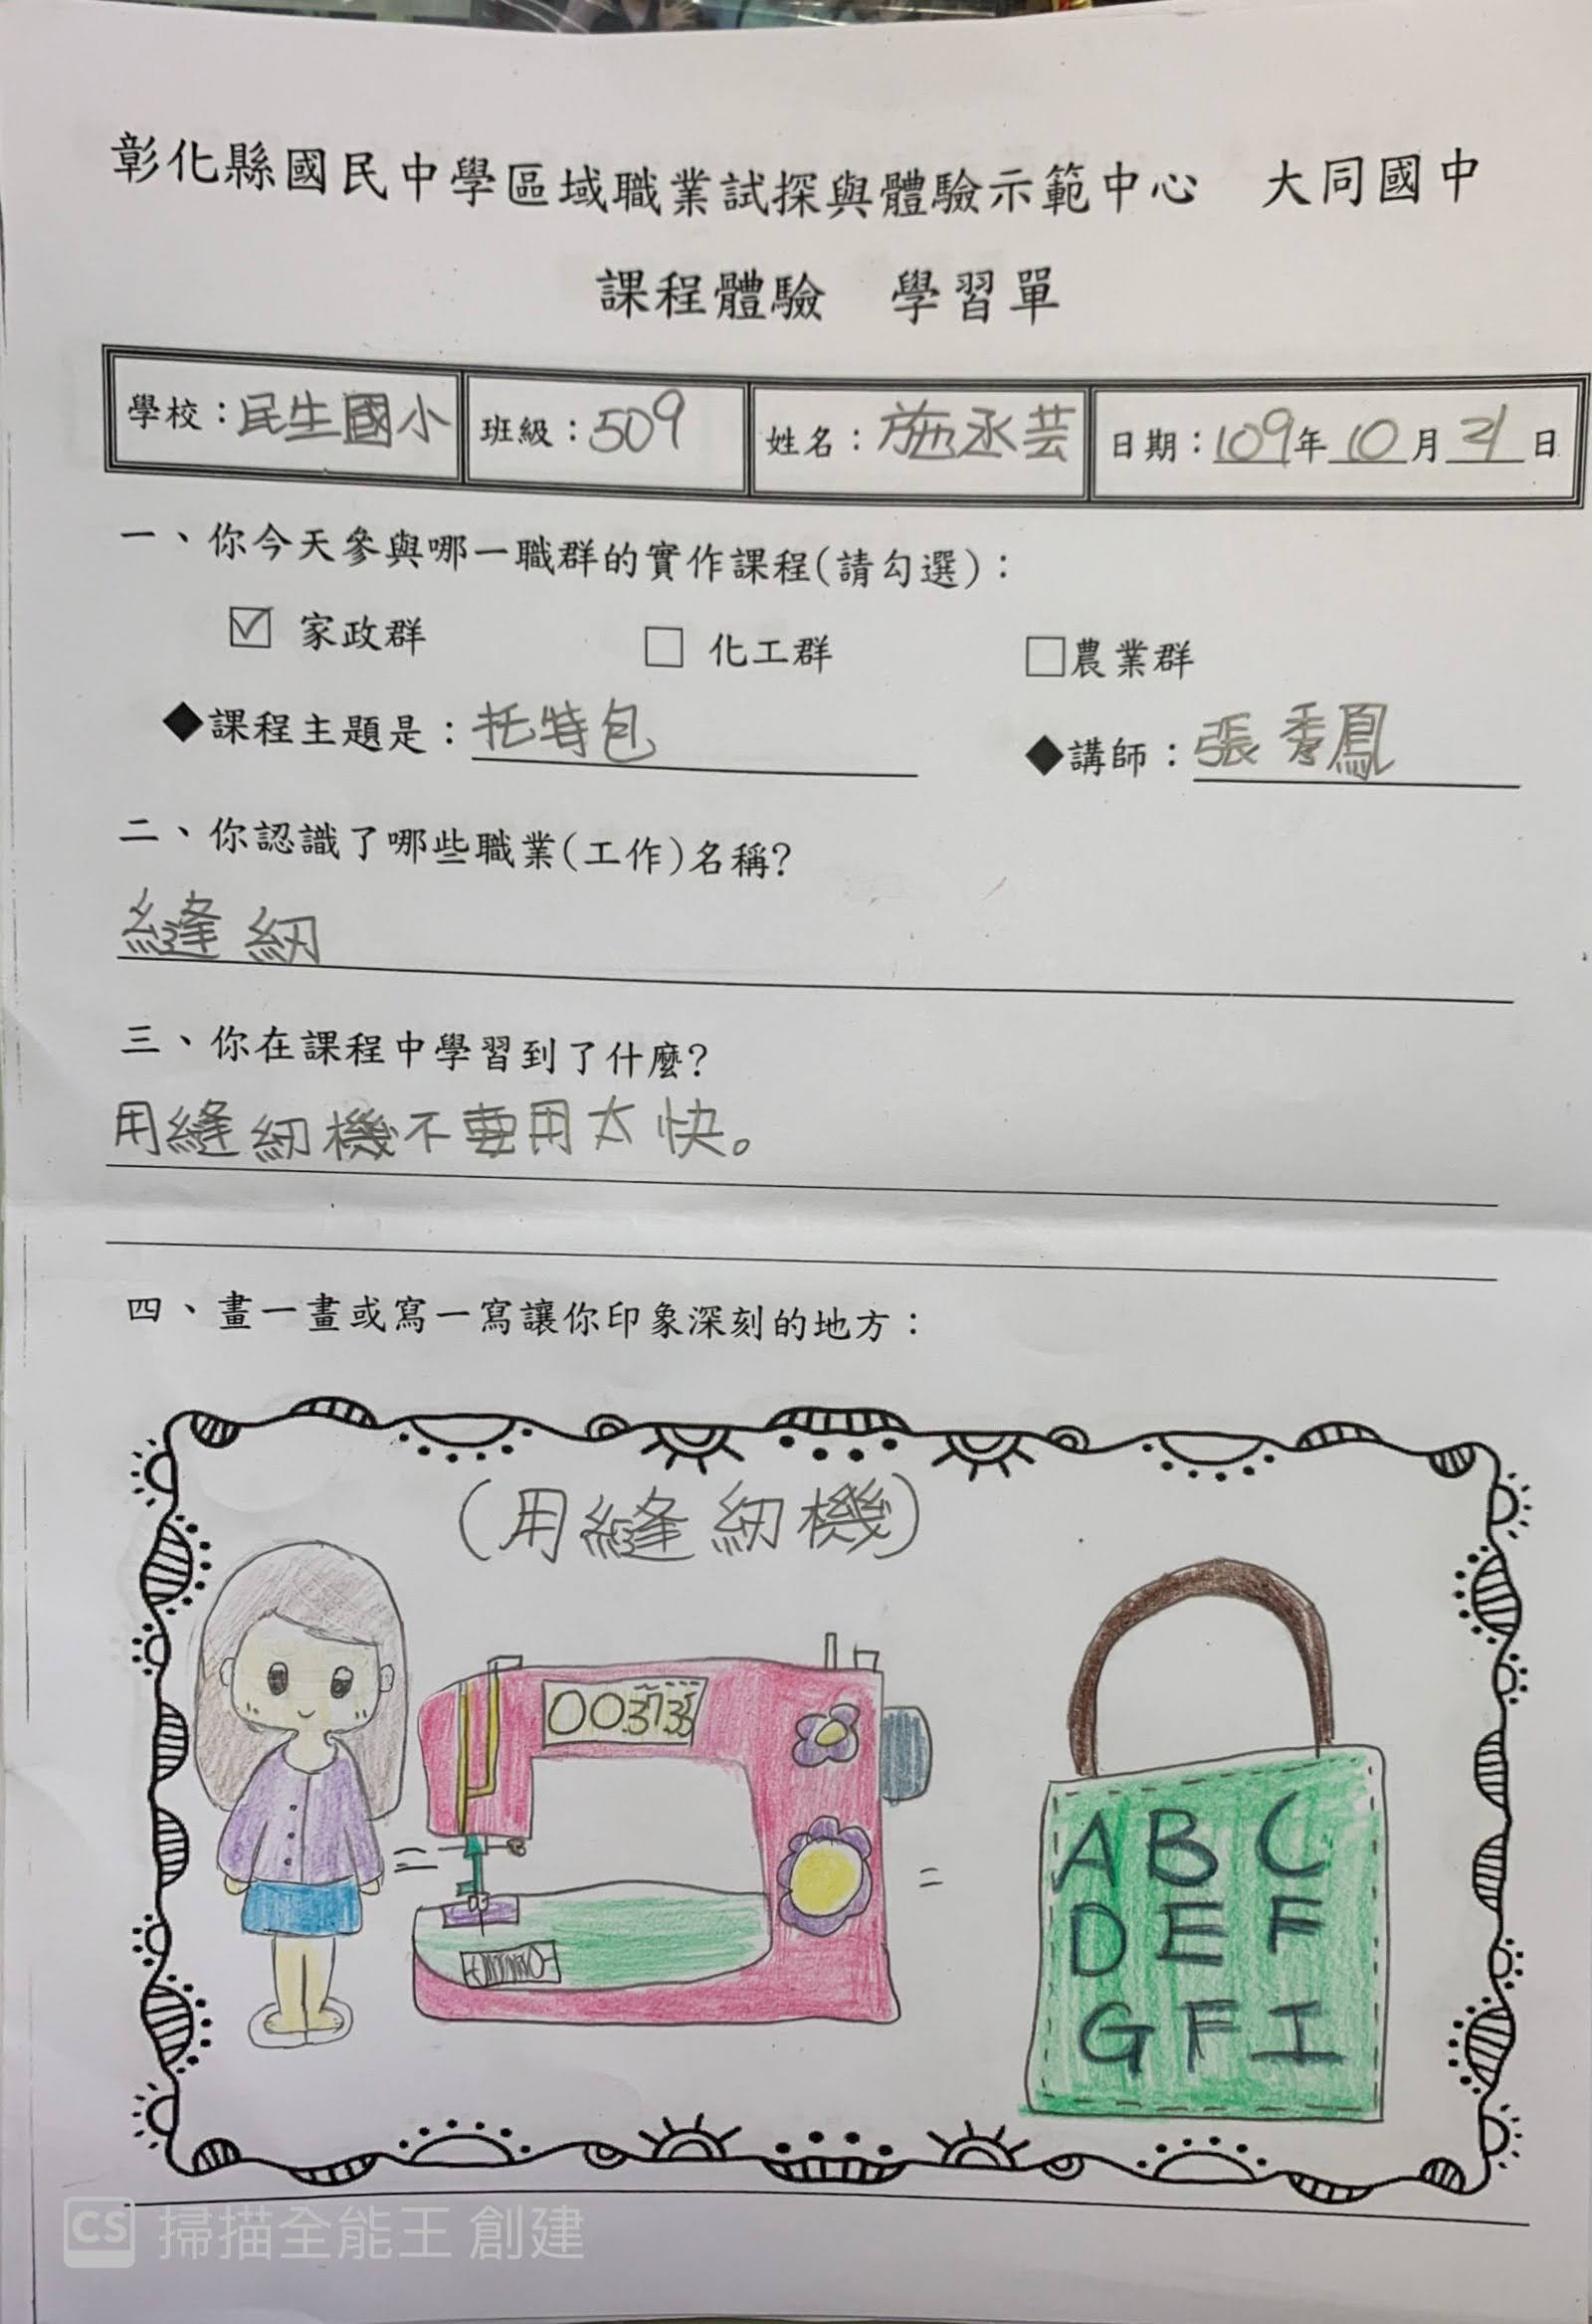 彰化縣國民中學區域職業試探與體驗示範中心 大同國中
課程體驗 學習單
學校：民生國小 班級：509 姓名：施丞芸 日期：109年10月21日
一、你今天參與哪一職群的實作課程(請勾選)：
☑ 家政群 □ 化工群 □農業群
◆課程主題是：托特包 ◆講師：張秀鳳
二、你認識了哪些職業(工作)名稱?
縫紉
三、你在課程中學習到了什麼?
用縫紉機不要用太快。
四、畫一畫或寫一寫讓你印象深刻的地方：
(用縫紉機)
003735
A B C
D E F
G F I
CS 掃描全能王 創建